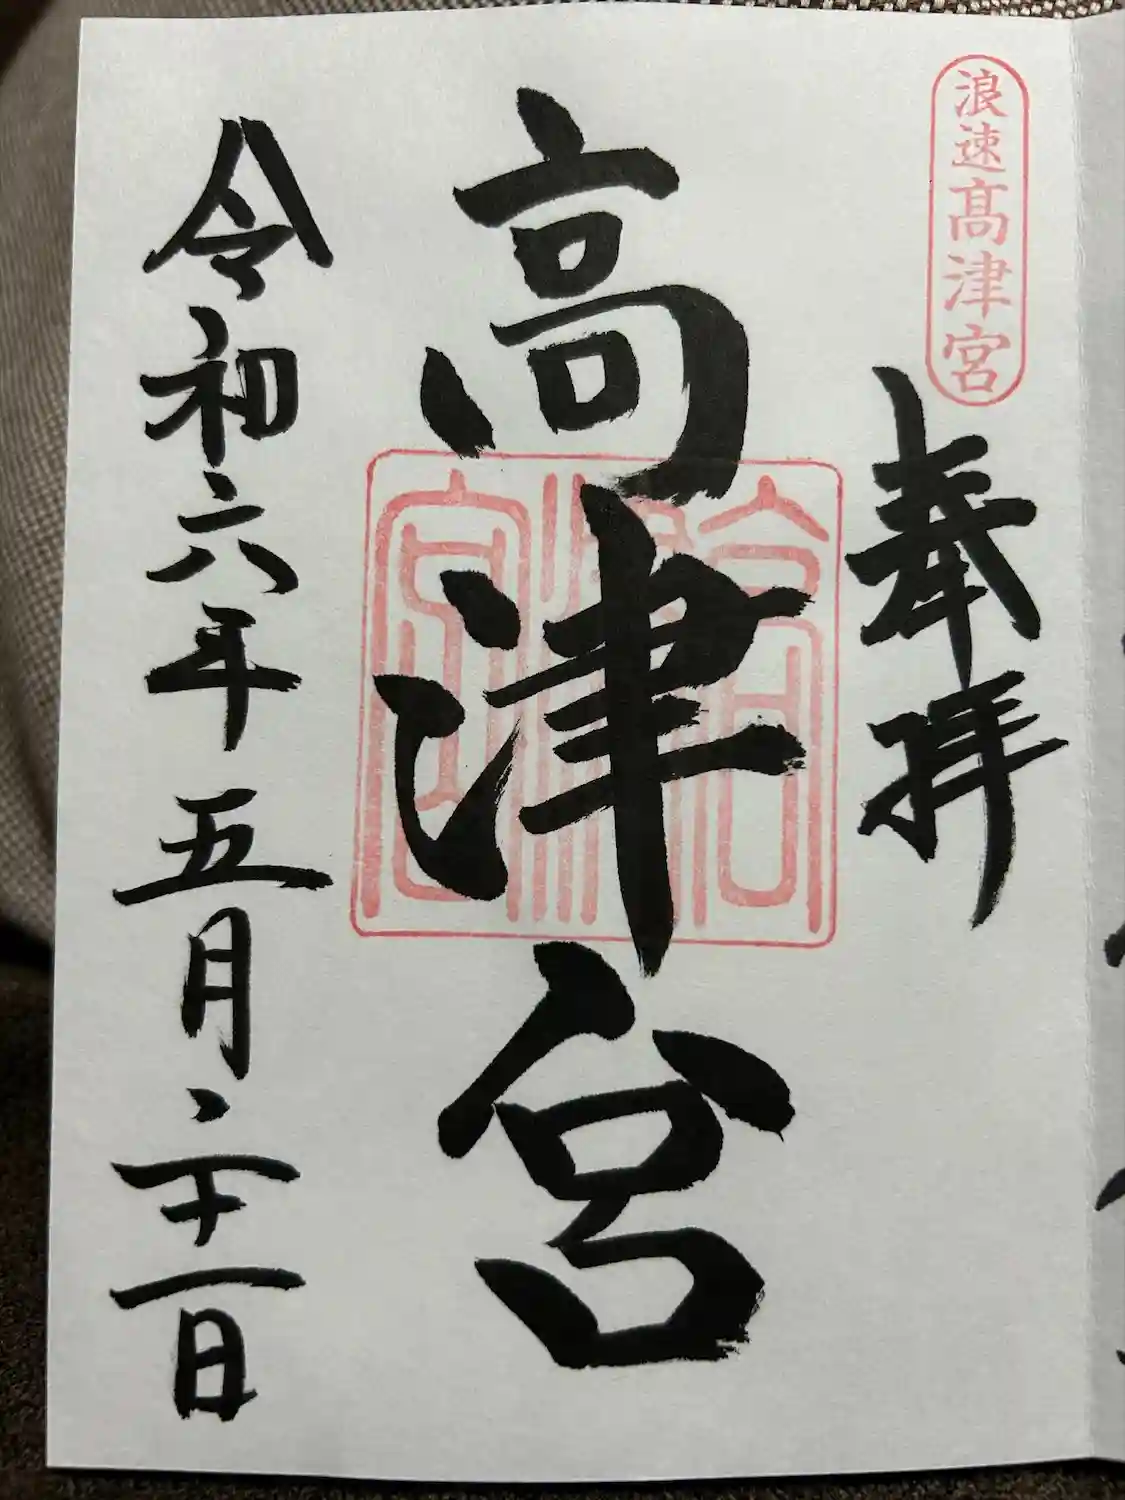 浪速髙津宮
奉拝
高津宮
高津宮
令和六年五月二十一日